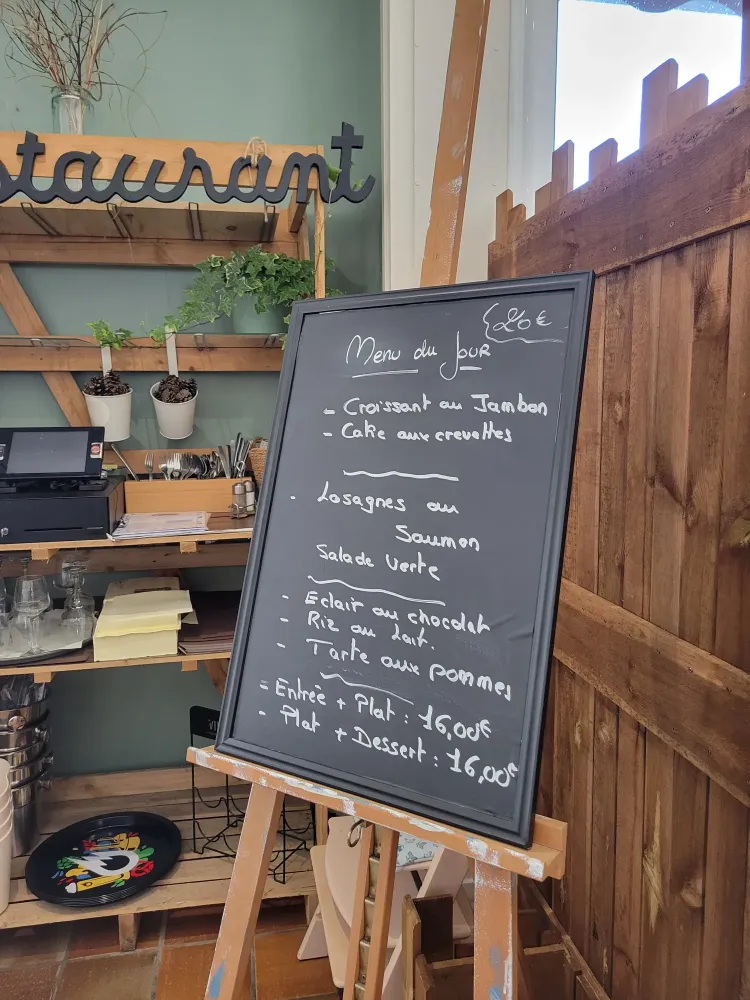 staurant
20€
Menu du Jour
- Croissant au Jambon
- Cake aux crevettes
- Lasagnes au
Saumon
Salade Verte
- Eclair au chocolat
- Riz au lait.
- Tarte aux pommes
- Entrée + Plat : 16,00€
- Plat + Dessert : 16,00€